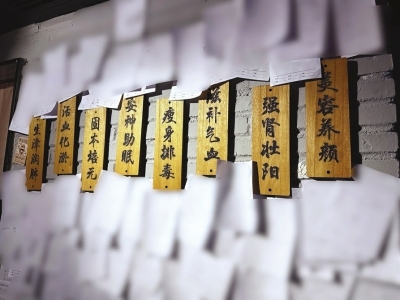 生津润肺
活血化瘀
固本培元
安神助眠
瘦身排毒
滋补气血
强肾壮阳
美容养颜